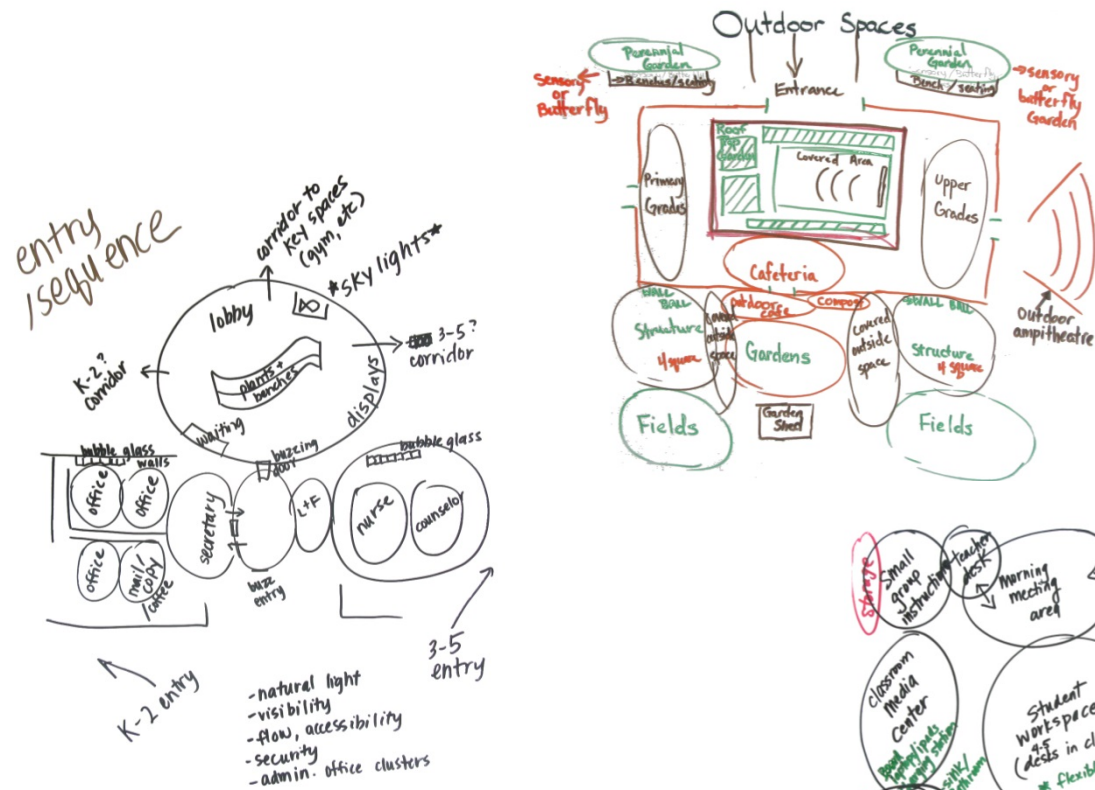 entry
/sequence
corridor to
key spaces
(gym, etc)
*skylights*
lobby
3-5?
corridor
K-2?
corridor
plants +
benches
displays
waiting
buzzing
door
bubble glass
walls
office
office
office
mail/
copy
/coffee
secretary
buzz
entry
L+F
bubble glass
nurse
counselor
K-2 entry
3-5
entry
-natural light
-visibility
-flow, accessibility
-security
-admin. office clusters
Outdoor Spaces
Perennial
Garden
Benches/seating
Sensory
or
Butterfly
Entrance
Perennial
Garden
Sensory/Butterfly
Bench/seating
sensory
or
butterfly
Garden
Roof
Top
Garden
Covered Area
Primary
Grades
Upper
Grades
Cafeteria
WALL
BALL
Structure
4 square
covered
outside
space
outdoor
cafe
compost
Gardens
covered
outside
space
WALL BALL
Structure
4 square
Outdoor
ampitheatre
Fields
Garden
Shed
Fields
storage
Small
group
instruction
teacher
desk
Morning
meeting
area
classroom
media
center
laptop/ipads
charging station
sink/
Student
workspace
4-5
(desks in cl
* flexib